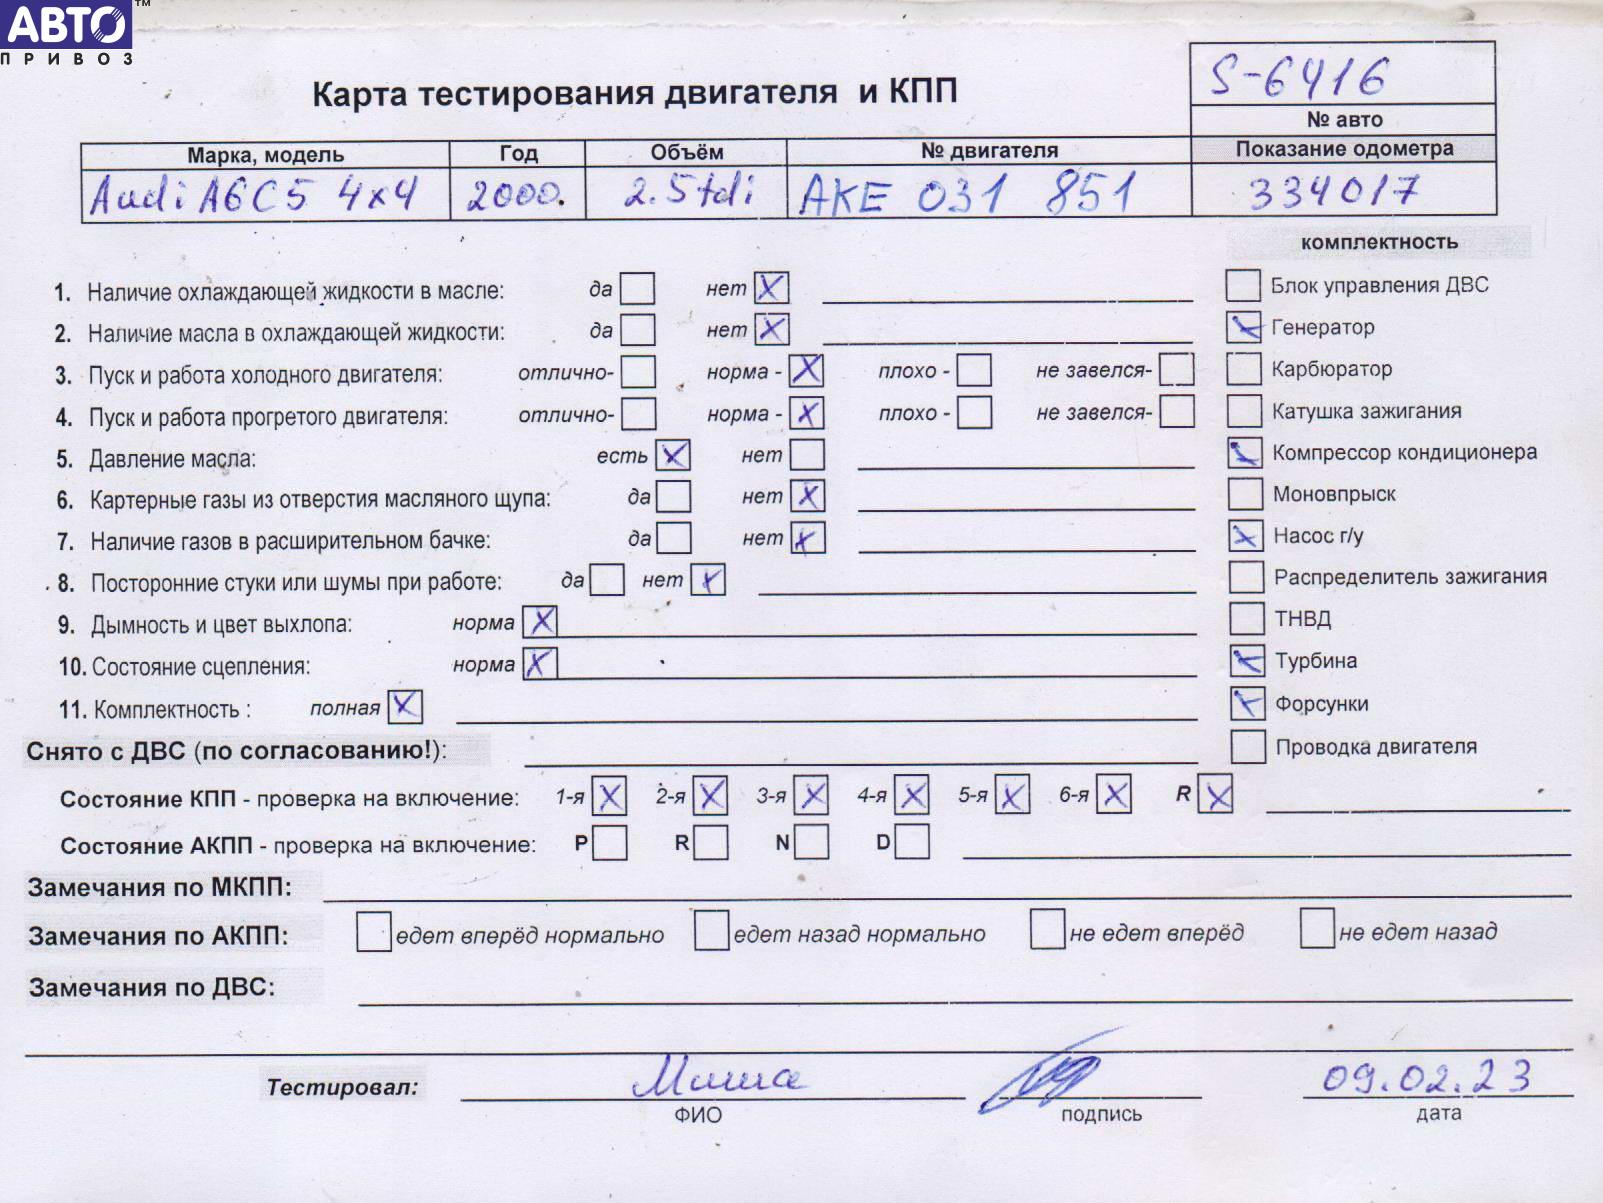 АВТО™
ПРИВОЗ
S-6416
Карта тестирования двигателя и КПП
№ авто
Марка, модель Год Объём № двигателя Показание одометра
Audi A6C5 4x4 2000. 2.5tdi AKE 031 851 334017
комплектность
1. Наличие охлаждающей жидкости в масле: да нет X Блок управления ДВС
2. Наличие масла в охлаждающей жидкости: да нет X Генератор
3. Пуск и работа холодного двигателя: отлично- норма - X плохо - не завелся- Карбюратор
4. Пуск и работа прогретого двигателя: отлично- норма - X плохо - не завелся- Катушка зажигания
5. Давление масла: есть X нет Компрессор кондиционера
6. Картерные газы из отверстия масляного щупа: да нет X Моновпрыск
7. Наличие газов в расширительном бачке: да нет X Насос г/у
8. Посторонние стуки или шумы при работе: да нет X Распределитель зажигания
9. Дымность и цвет выхлопа: норма X ТНВД
10. Состояние сцепления: норма X Турбина
11. Комплектность : полная X Форсунки
Снято с ДВС (по согласованию!): Проводка двигателя
Состояние КПП - проверка на включение: 1-я X 2-я X 3-я X 4-я X 5-я X 6-я X R X
Состояние АКПП - проверка на включение: P R N D
Замечания по МКПП:
Замечания по АКПП: едет вперёд нормально едет назад нормально не едет вперёд не едет назад
Замечания по ДВС:
Тестировал: Миша 09.02.23
ФИО подпись дата